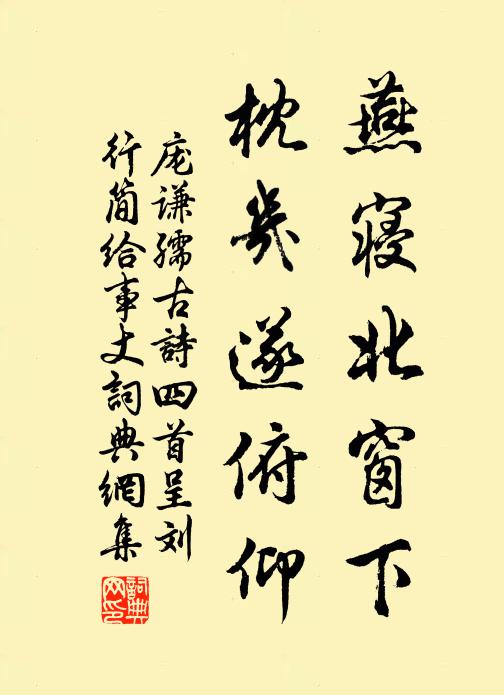 燕寝北窗下
枕几遂俯仰
庞谦孺古詩四首呈刘
行简给事丈詞典網集
詞典網印